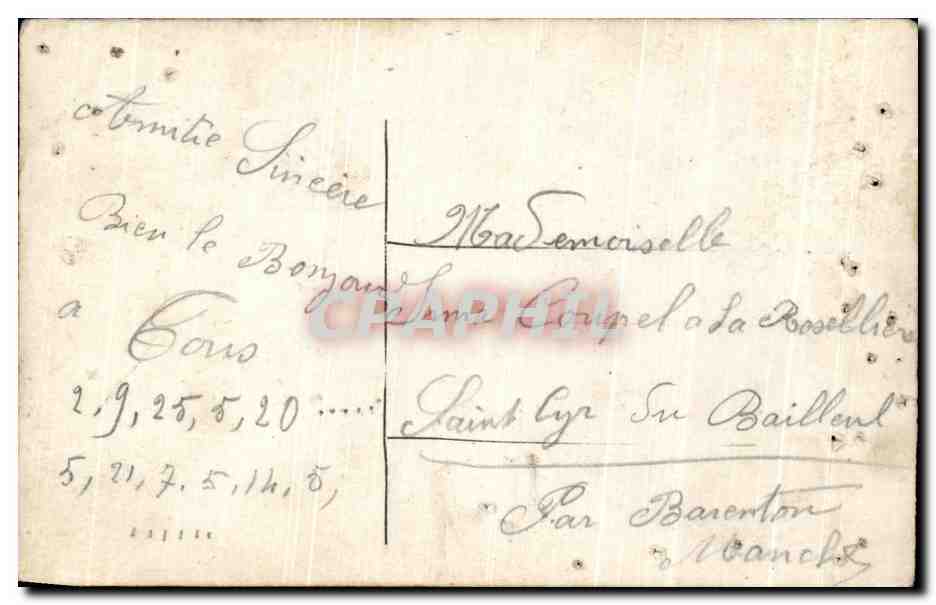 Amitie
Sincère
Bien le Bonjour
a
Tous
2, 9, 25, 5, 20 .....
5, 21, 7. 5, 14, 5,
......
Mademoiselle
Coupel a La Rosellière
Saint Cyr du Bailleul
Par Barenton
Manche
CPAPHIL